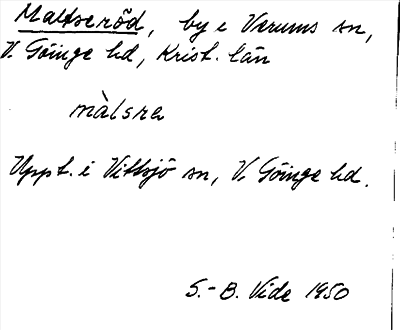 Maltseröd, by i Verums sn,
V. Göinge hd, Krist. län
màlsra
Uppt. i Vittsjö sn, V. Göinge hd.
S.-B. Vide 1950